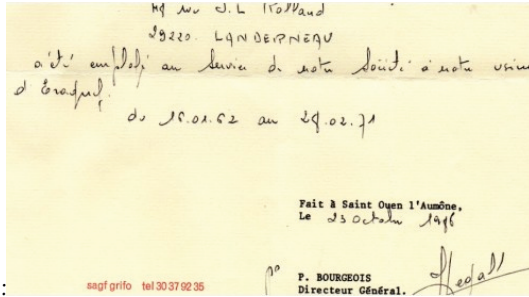 rue J.L Rolland
29220. LANDERNEAU
a été employé au service de notre Société à notre usine
d'
du 16.01.62 au 28.02.71
Fait à Saint Ouen l'Aumône,
Le 23 Octobre 1986
P. BOURGEOIS
Directeur Général.
sagf grifo tel 30 37 92 35
: